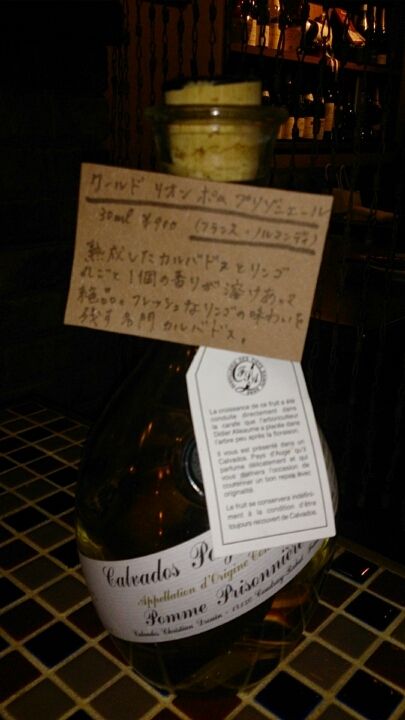 クールド リオン ポム プリゾニエール
30ml ¥900 (フランス・ノルマンディ)
熟成したカルバドスとリンゴ
丸ごと1個の香りが溶けあって
絶品。フレッシュなリンゴの味わいを
残す名門カルバドス。
La croissance de ce fruit a été
conduite directement dans
la carafe que l'arboriculteur
Didier Alleaume a placée dans
l'arbre peu après la floraison.
Il vous est présenté dans un
Calvados Pays d'Auge qu'il
parfume délicatement et qui
vous donnera l'occasion de
couronner un bon repas avec
originalité.
Le fruit se conservera indéfini-
ment à la condition d'être
toujours recouvert de Calvados.
Calvados Pays
Appellation d'Origine
Pomme Prisonnière
Calvados Christian Drouin - 14130 Coudray Rabut